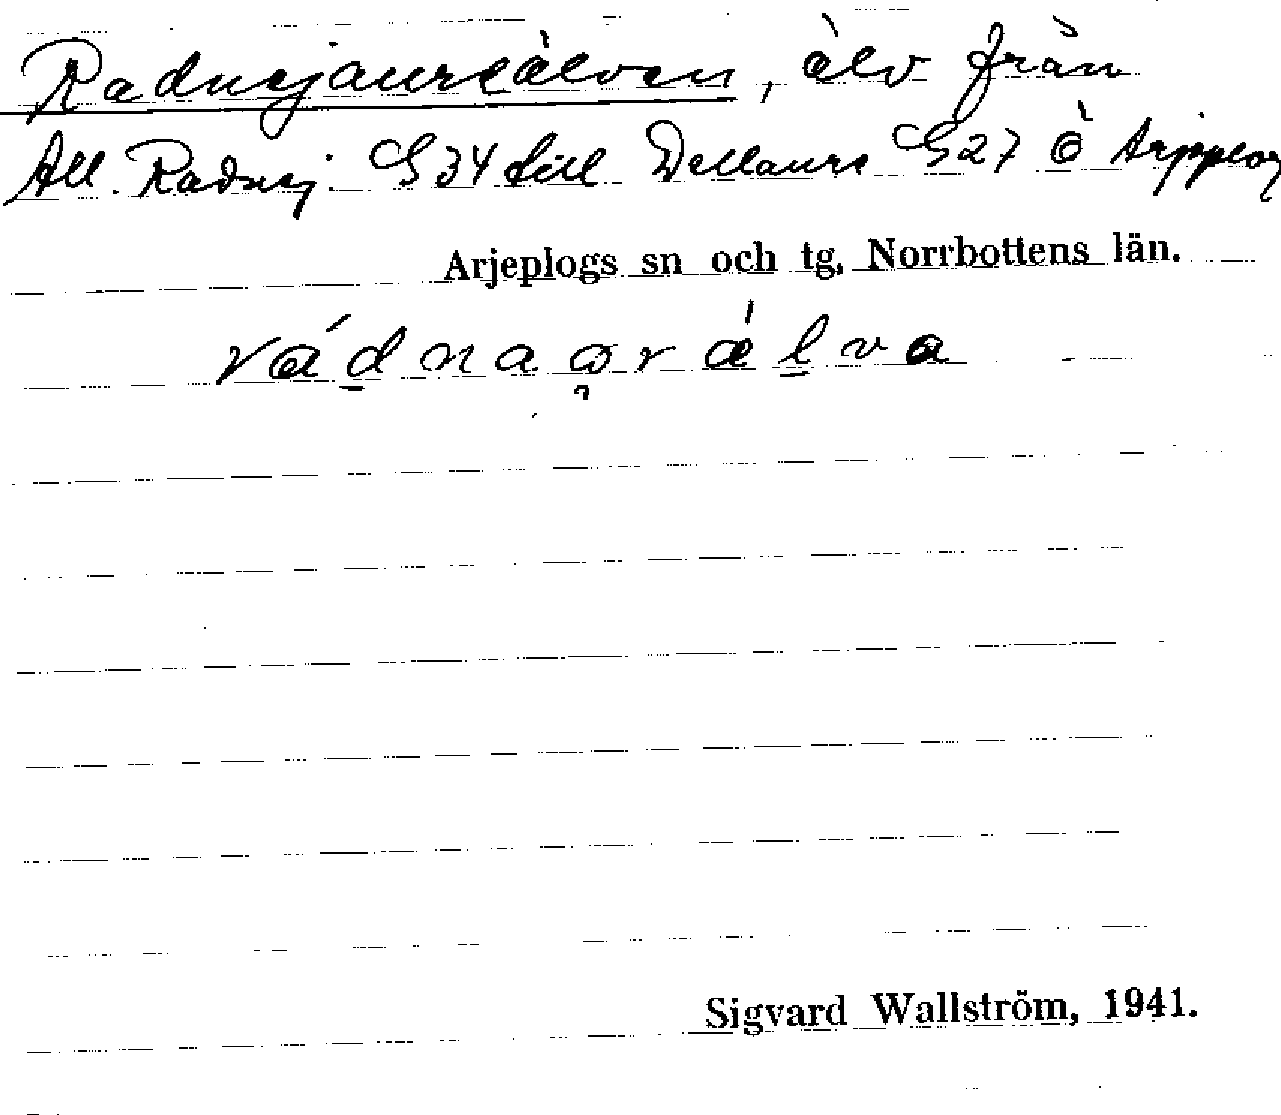 Radnejaureälven, älv från
All. Radnej. G 34 till Dellaure G 27 Ö Arjeplog
Arjeplogs sn och tg, Norrbottens län.
rádnaǫrǽlva
Sigvard Wallström, 1941.